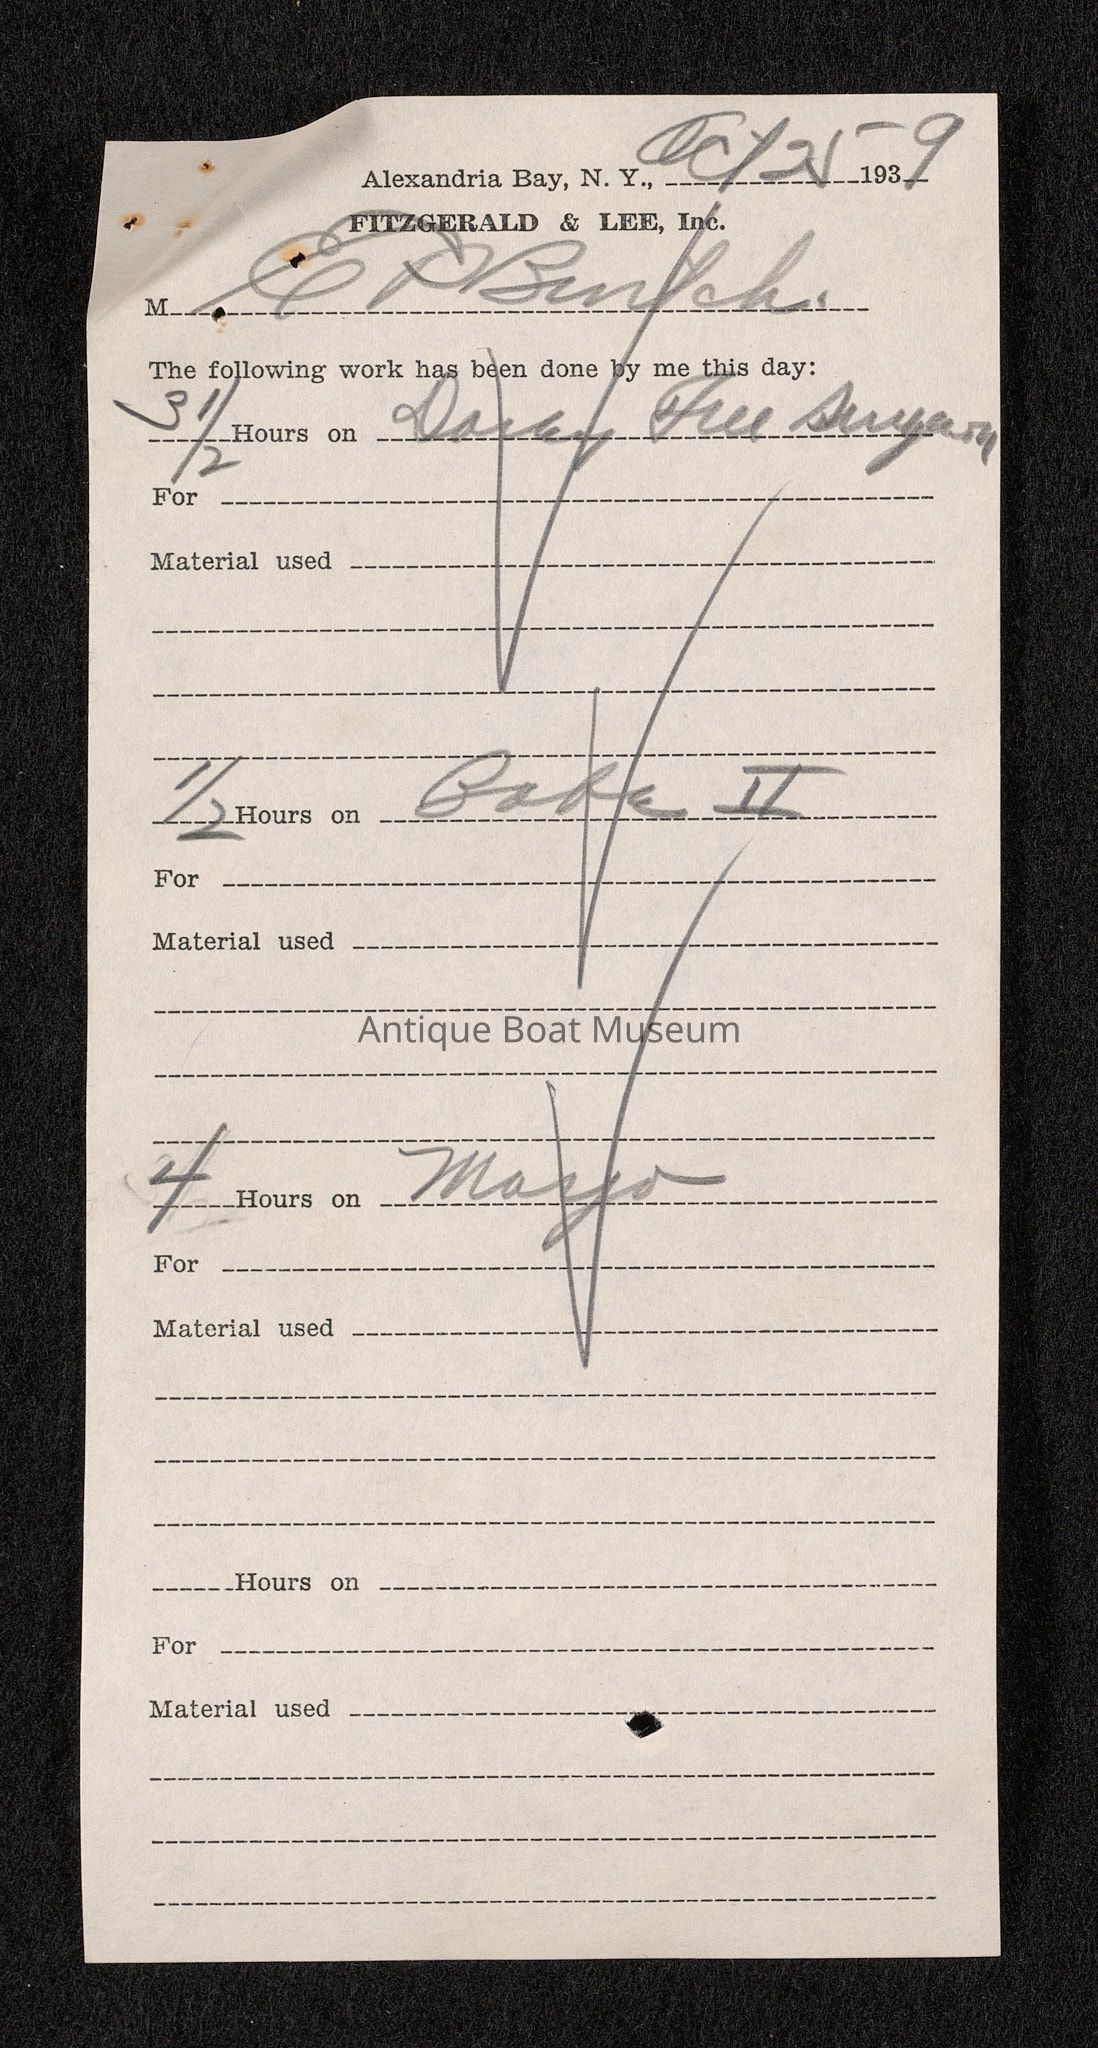 Alexandria Bay, N. Y., Oct 25 1939
FITZGERALD & LEE, Inc.
M E P Burtch.
The following work has been done by me this day:
3 1/2 Hours on Tree Surgeon
For
Material used
1/2 Hours on II
For
Material used
Antique Boat Museum
4 Hours on Margo
For
Material used
Hours on
For
Material used